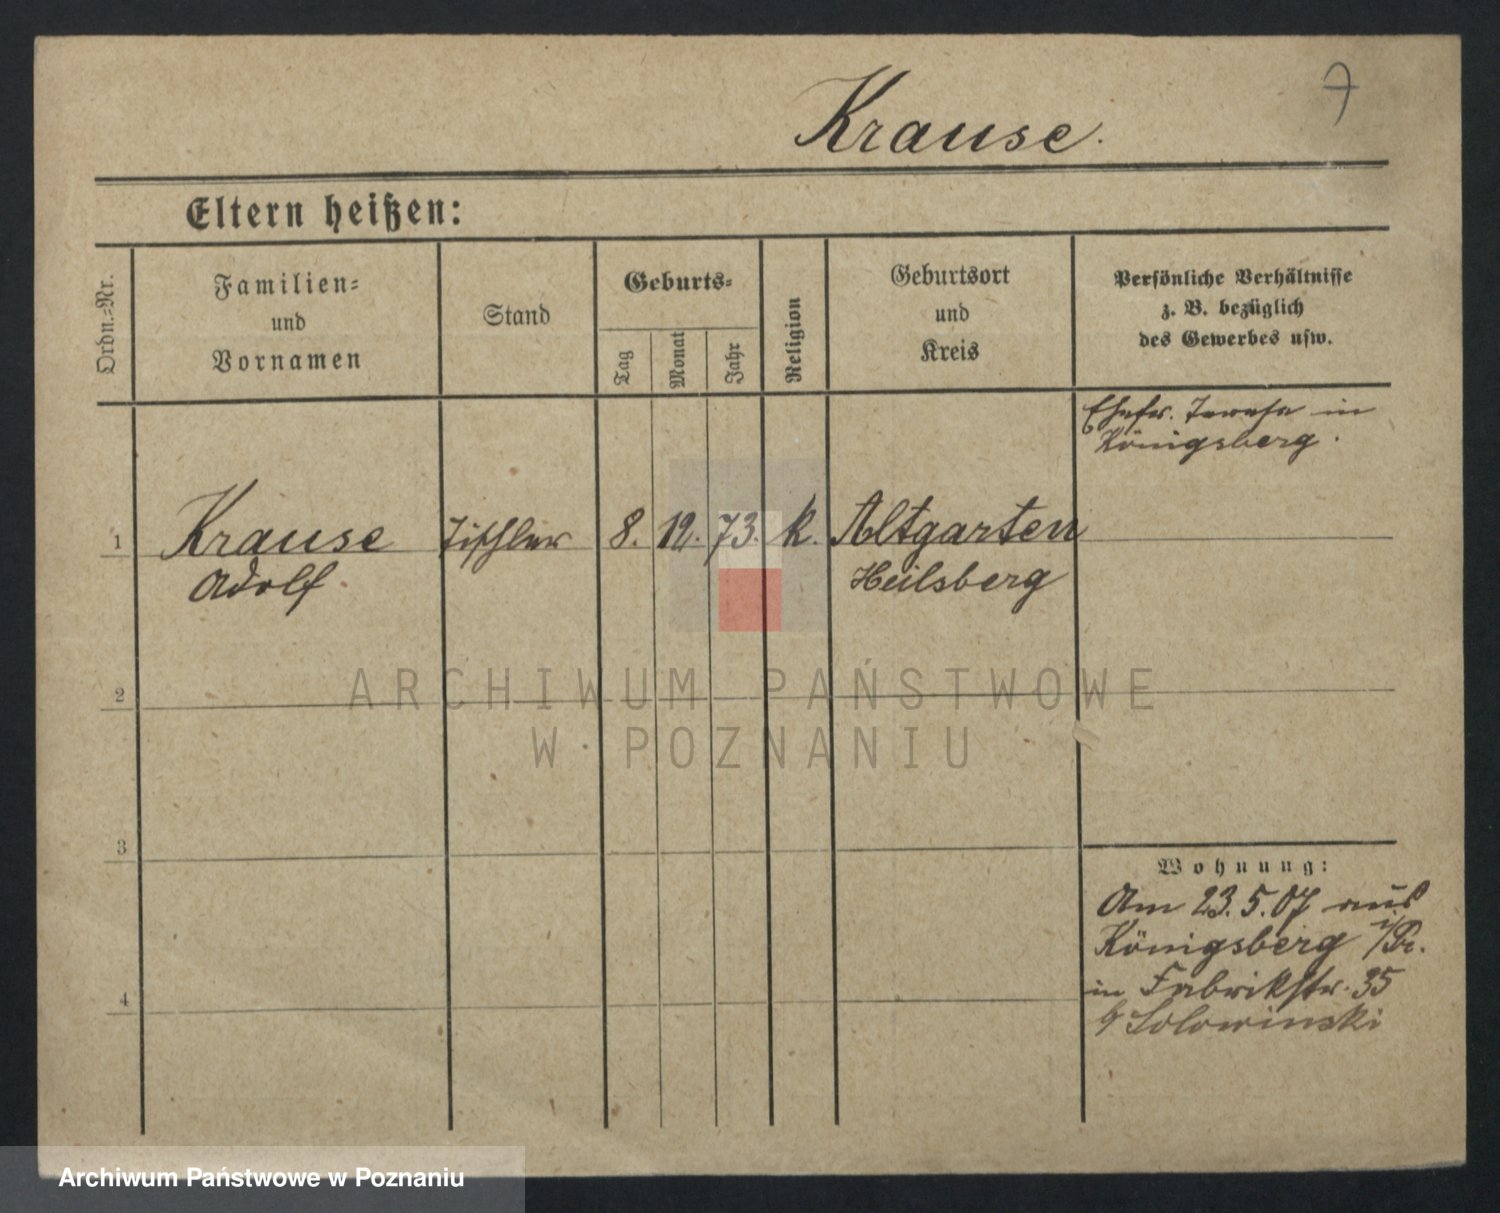 7
Krause.
Eltern heißen:
Ordn.=Nr.
Familien=
und
Vornamen
Stand
Geburts=
Tag
Monat
Jahr
Religion
Geburtsort
und
Kreis
Persönliche Verhältnisse
z. B. bezüglich
des Gewerbes usw.
Ehefr. in
Königsberg.
1 Krause Tischler 8. 12. 73. k. Altgarten
Adolf Heilsberg
2
ARCHIWUM PAŃSTWOWE
W POZNANIU
3
Wohnung:
Am 23.5.07 aus
Königsberg i/Pr.
in Fabrikstr. 35
b/ Solowinski
4
Archiwum Państwowe w Poznaniu